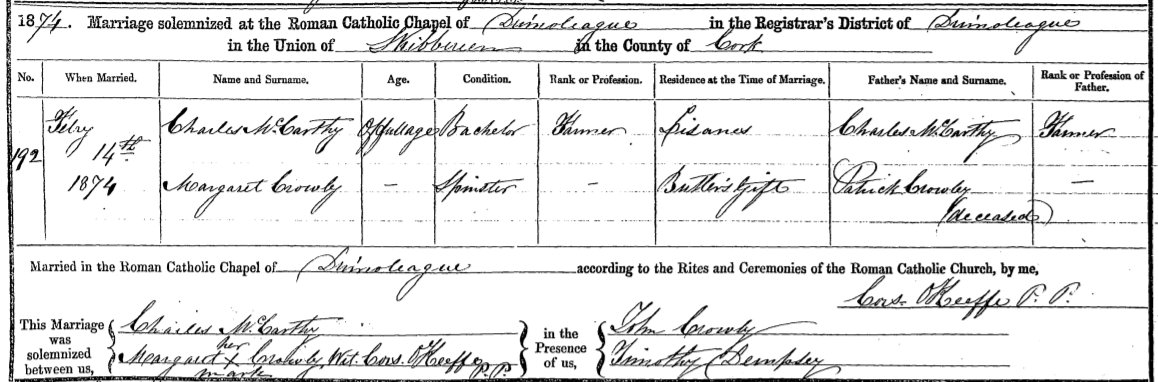 1874. Marriage solemnized at the Roman Catholic Chapel of Drimoleague in the Registrar's District of Drimoleague
in the Union of Skibbereen in the County of Cork
No. When Married. Name and Surname. Age. Condition. Rank or Profession. Residence at the Time of Marriage. Father's Name and Surname. Rank or Profession of Father.
192 Feby 14th 1874 Charles McCarthy Of full age Bachelor Farmer Lisanes Charles McCarthy Farmer
Margaret Crowly – Spinster – Butler's Gift Patrick Crowley –
(deceased)
Married in the Roman Catholic Chapel of Drimoleague according to the Rites and Ceremonies of the Roman Catholic Church, by me,
Cors. O'Keeffe P. P.
This Marriage was solemnized between us, Charles McCarthy in the Presence of us, John Crowly
Margaret her x mark Crowly Wit. Cors. O'Keeffe P.P. Timothy Dempsey